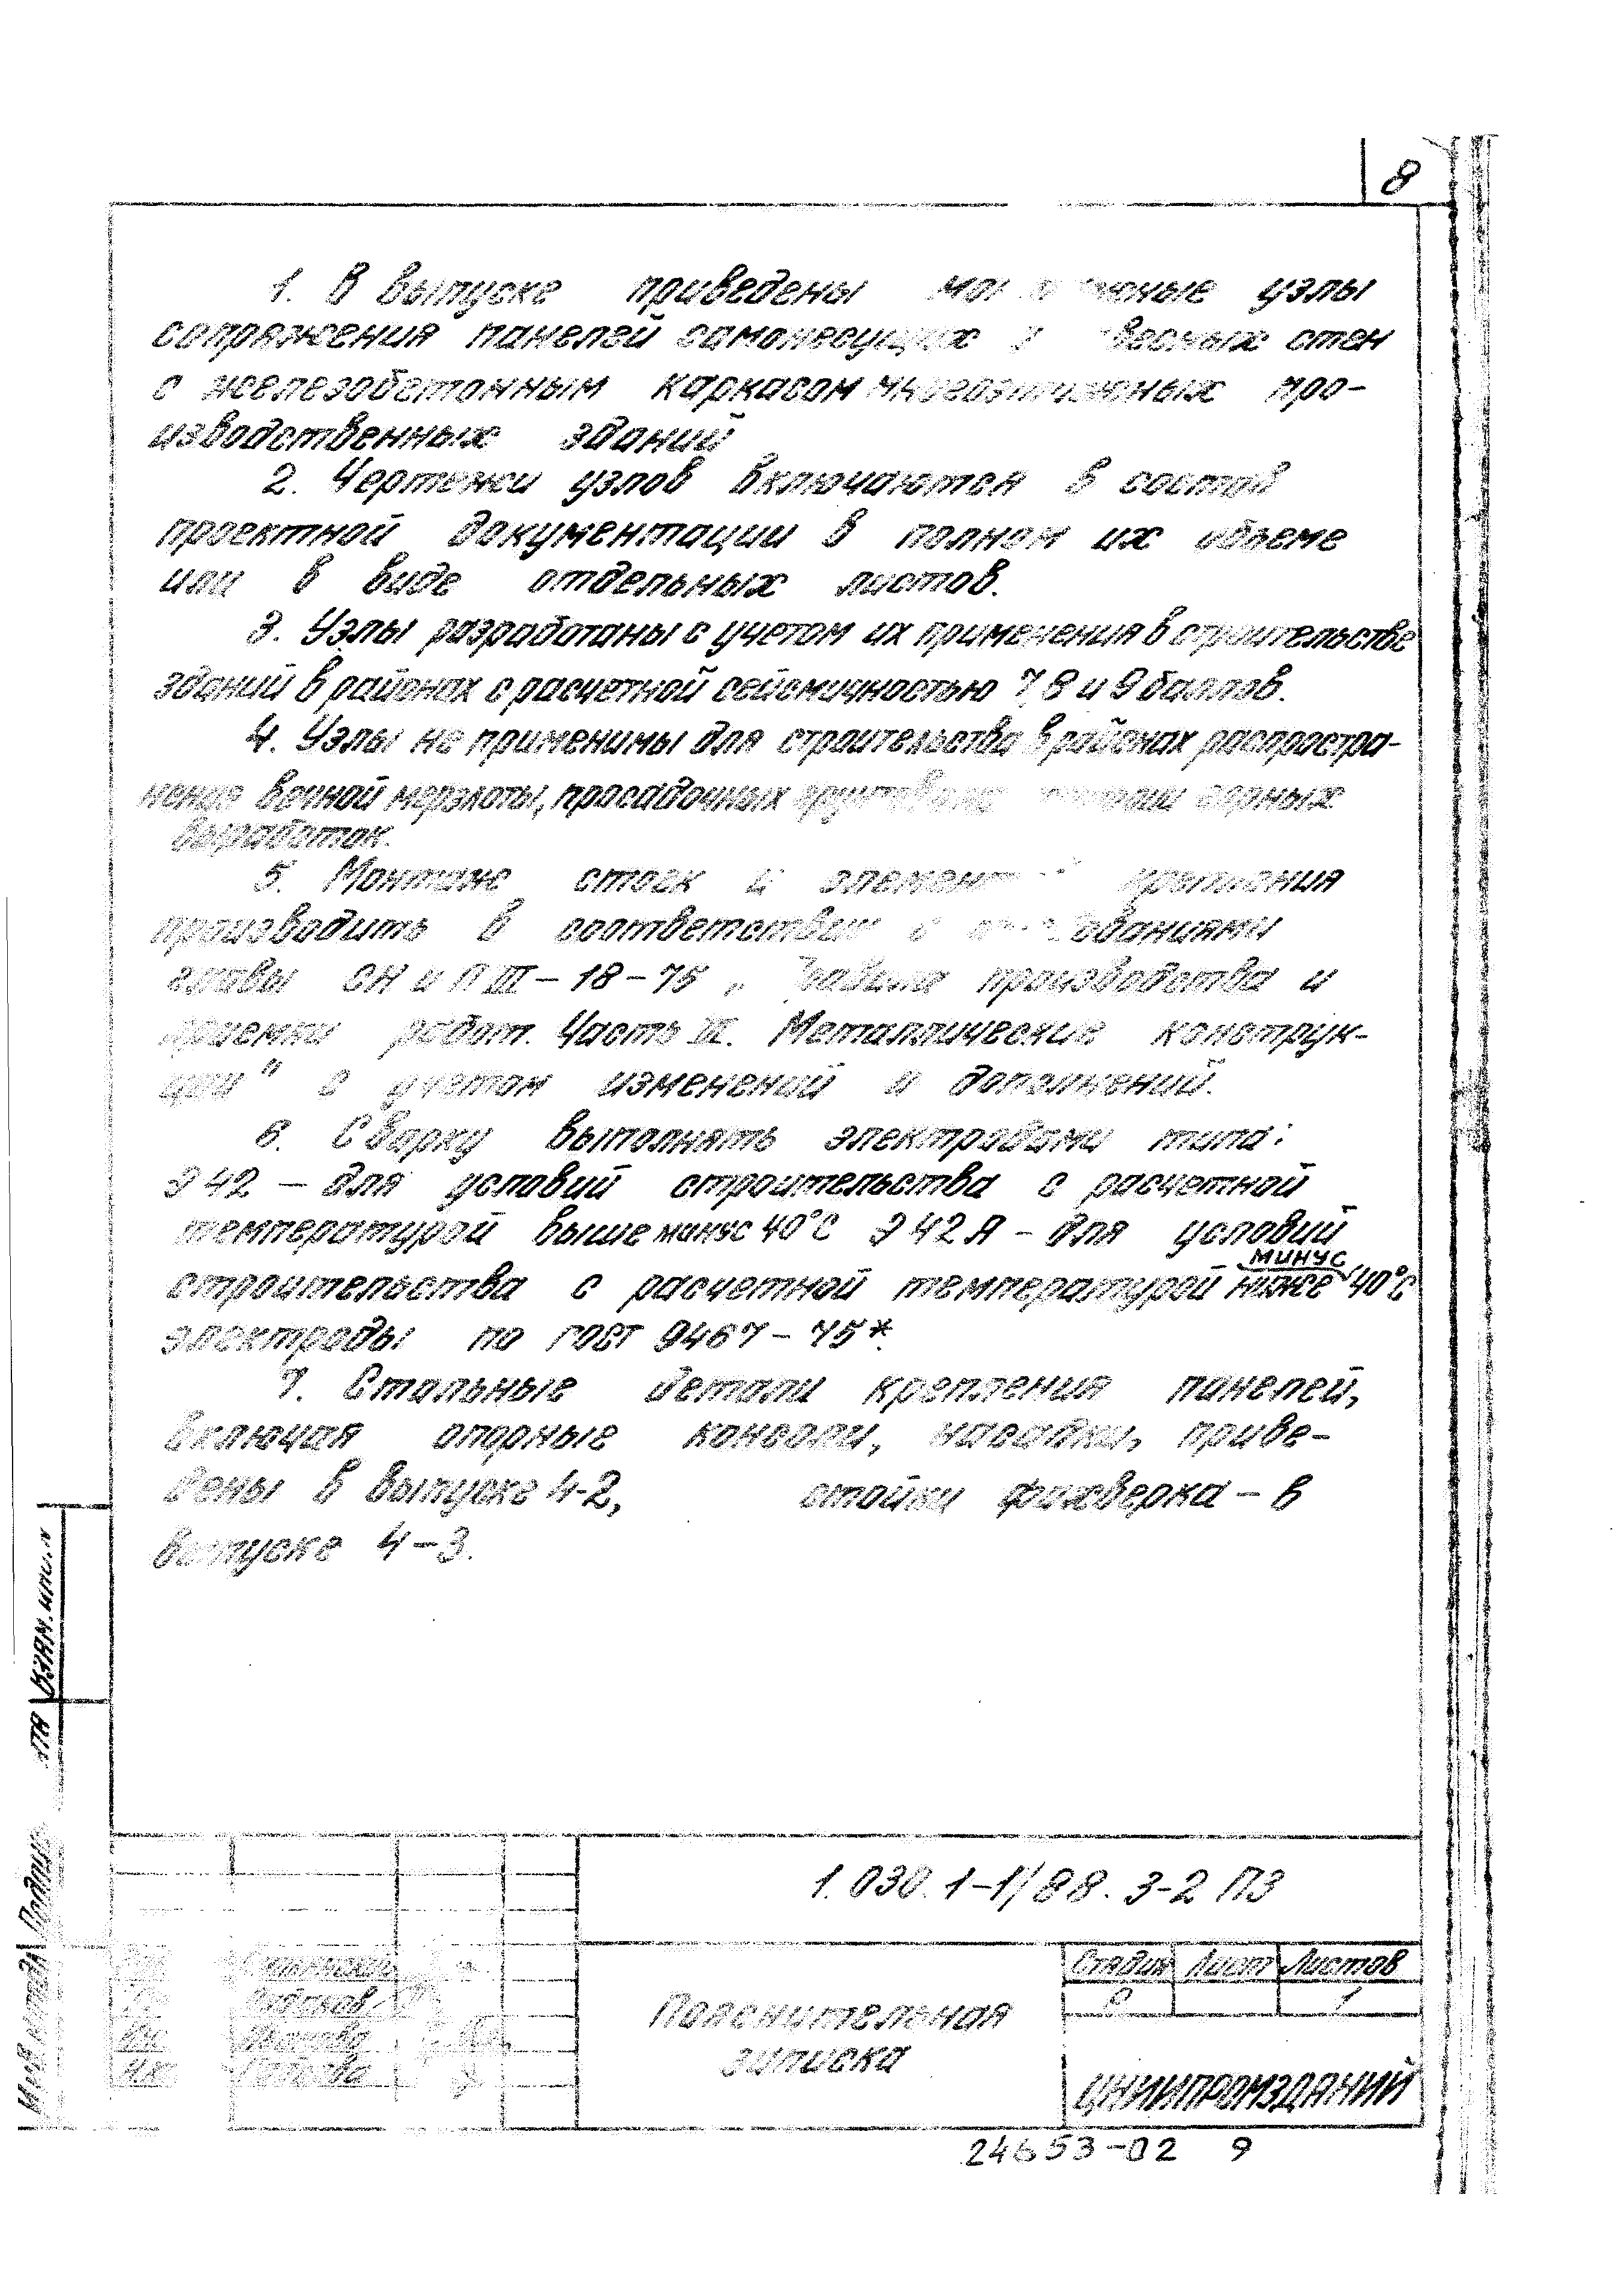 8
1. В выпуске приведены узлы
сопряжения панелей самонесущих стен
с железобетонным каркасом многоэтажных про-
изводственных зданий
2. Чертежи узлов включаются в состав
проектной документации в полном их объеме
или в виде отдельных листов.
3. Узлы разработаны с учетом их применения в строительстве
зданий в районах с расчетной сейсмичностью 7, 8 и 9 баллов.
4. Узлы не применимы для строительства в районах распростра-
нения вечной мерзлоты, просадочных горных
выработок.
5. Монтаж стоек и крепления
производить в соответствии с
главы СН и П III – 18 – 75 „ производства и
приемки работ. Часть III. Металлические конструк-
ции" с учетом изменений и дополнений.
6. Сварку выполнять электродами типа:
Э 42 – для условий строительства с расчетной
температурой выше минус 40°С Э 42 А – для условий
строительства с расчетной температурой ниже минус 40°С
электроды по ГОСТ 9467 – 75*.
7. Стальные детали крепления панелей,
включая опорные консоли, насадки, приве-
дены в выпуске 4-2, стойки фахверка – в
выпуске 4 – 3.
Взам. инв. N
Подпись
1.030.1-1/88.3-2 ПЗ
Пояснительная
записка
Стадия Лист Листов
Р 1
ЦНИИПРОМЗДАНИЙ
24653-02 9